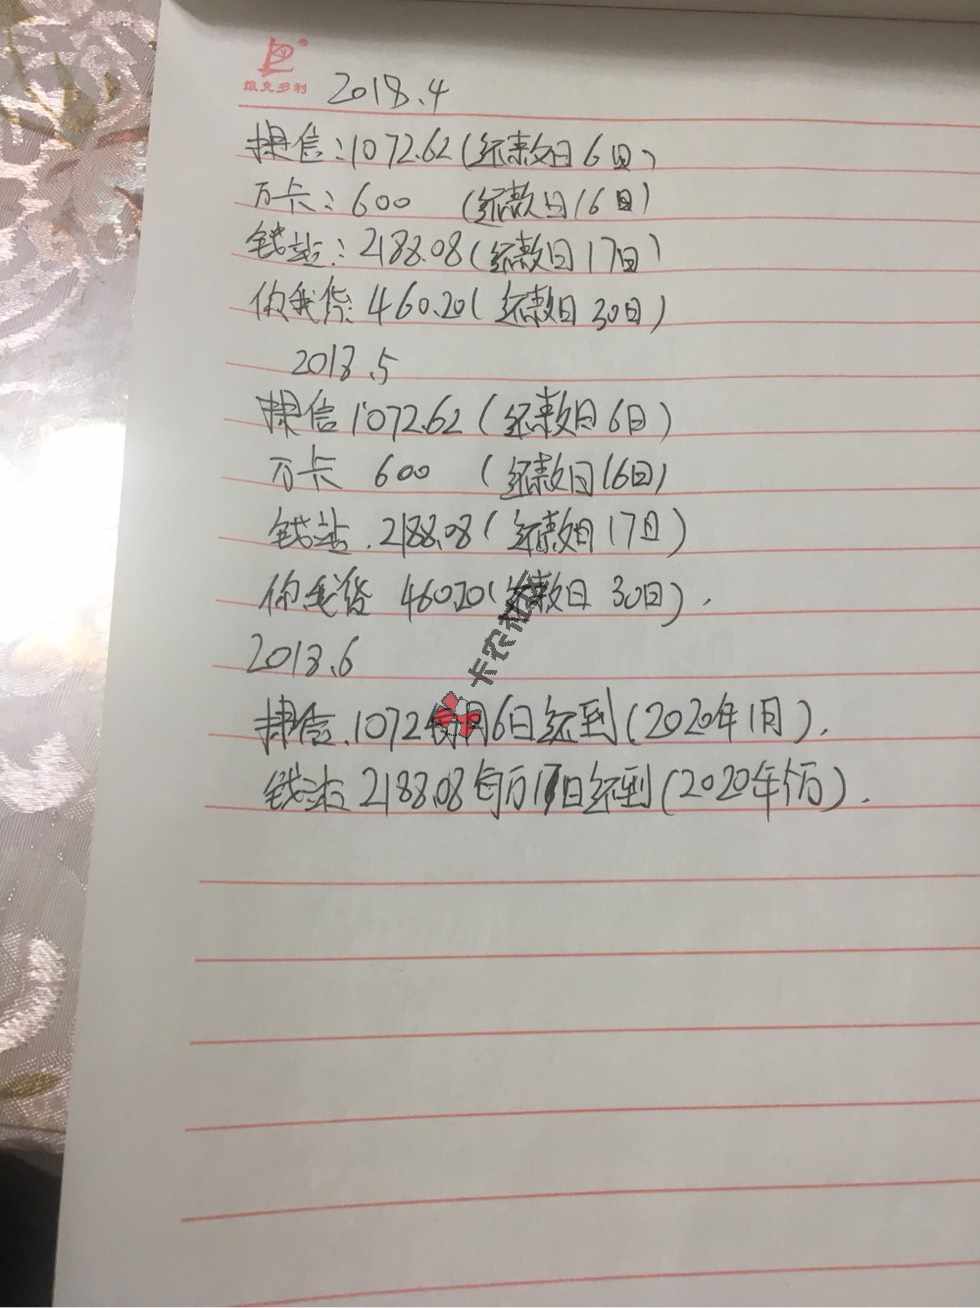 维克多利
2018.4
捷信:1072.62(还款日6日)
万卡:600 (还款日16日)
钱站:2188.08(还款日17日)
你我贷:460.20(还款日30日)
2018.5
捷信 1072.62(还款日6日)
万卡 600 (还款日16日)
钱站.2188.08(还款日17日)
你我贷 460.20(还款日30日).
2018.6
捷信.1072每月6日还到(2020年1月).
钱站 2188.08每月17日还到(2020年1月).
卡农社